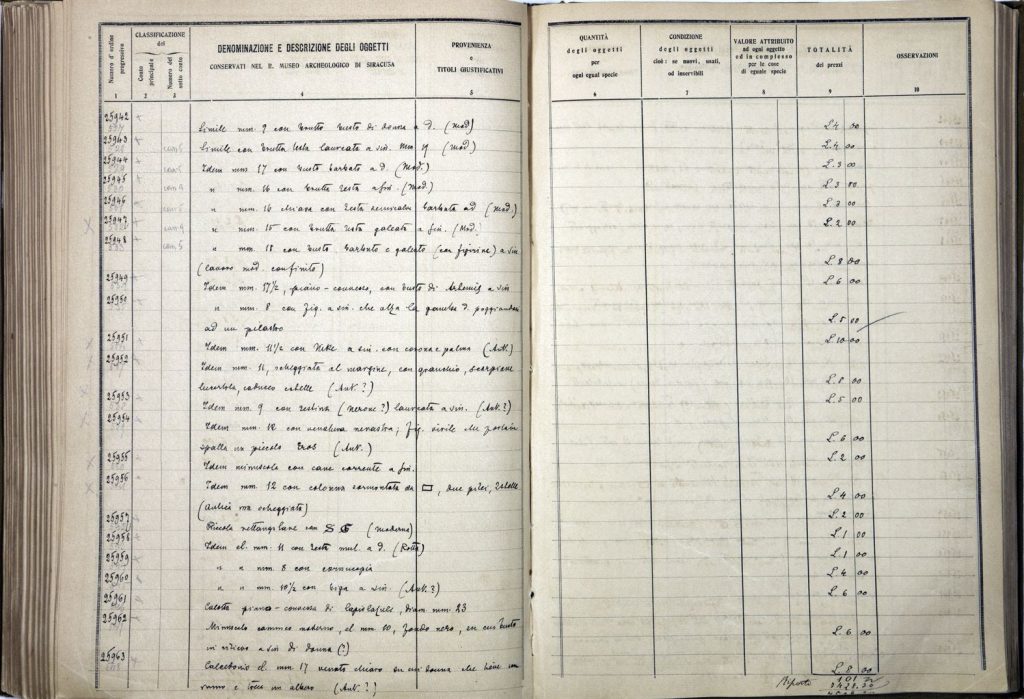 Numero d'ordine progressivo
CLASSIFICAZIONE
del
Conto principale
Numero del sotto conto
DENOMINAZIONE E DESCRIZIONE DEGLI OGGETTI
CONSERVATI NEL R. MUSEO ARCHEOLOGICO DI SIRACUSA
PROVENIENZA
e
TITOLI GIUSTIFICATIVI
1 2 3 4 5
QUANTITÀ
degli oggetti
per
ogni egual specie
CONDIZIONE
degli oggetti
cioè: se nuovi, usati,
od inservibili
VALORE ATTRIBUITO
ad ogni oggetto
ed in complesso
per le cose
di eguale specie
TOTALITÀ
dei prezzi
OSSERVAZIONI
6 7 8 9 10
25942
Simile mm. 9 con brutto busto di donna a d. (mod) L. 4 00
25943
Simile con brutta testa laureata a sin. mm. (mod.) L. 4 00
25944
Idem mm. 17 con busto barbato a d. (Mod.) L. 3 00
25945
" mm. 16 con brutta testa a sin. (Mod.) L. 3 00
25946
" mm. 16 chiara con testa barbata ad (Mod.) L. 3 00
25947
" mm. 15 con brutta testa galeata a sin. (Mod.) L. 2 00
25948
" mm. 18 con busto barbuto e galeato (con figurine) a sin
(lavoro mod. non finito) L. 8 00
25949
Idem mm. 17 1/2, piano-convesso, con busto di Artemis a sin L. 6 00
25950
" mm. 8 con fig. a sin. che alza la gamba d. poggiandola
ad un pilastro L. 5 00
25951
Idem mm. 11 1/2 con Nike a sin. con corona e palma (Ant.) L. 10 00
25952
Idem mm. 11, scheggiata al margine, con granchio, scorpione
lucertola, caduceo e stelle (Ant.?) L. 8 00
25953
Idem mm. 9 con testina (Nerone?) laureata a sin. (Ant.?) L. 5 00
25954
Idem mm. 12 con venatura nerastra; fig. virile che porta in
spalla un piccolo Eros (Ant.) L. 6 00
25955
Idem minuscola con cane corrente a sin. L. 2 00
25956
Idem mm. 12 con colonna sormontata da □, due pilei, 2 stelle
(antica ma scheggiata) L. 4 00
25957
Piccola rettangolare con (moderna) L. 2 00
25958
Idem el. mm. 11 con testa mul. a d. (Rotta) L. 1 00
25959
" " mm. 8 con cornucopia L. 1 00
25960
" " mm. 10 1/2 con biga a sin. (Ant.?) L. 4 00
25961
Calotta piano-convessa di lapislazuli, diam. mm. 23 L. 6 00
25962
Minuscolo cammeo moderno, el. mm. 10, fondo nero, su cui busto
in rilievo a sin. di donna (?) L. 6 00
25963
Calcedonio el. mm. 17 venato chiaro su cui donna che tiene un
ramo e tocca un albero (Ant.?) L. 8 00
Riporto 101